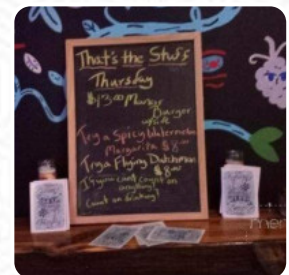 That's the Stuff
Thursday
$13.00 Manor
Burger
Try a Spicy Watermelon
Margarita $8.00
Try a Flying Dutchman
$8.00
If you can't count on
anything!
Count on drinking!